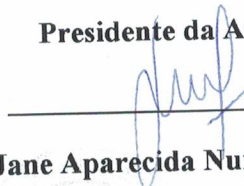 Presidente da A
Jane Aparecida Nu